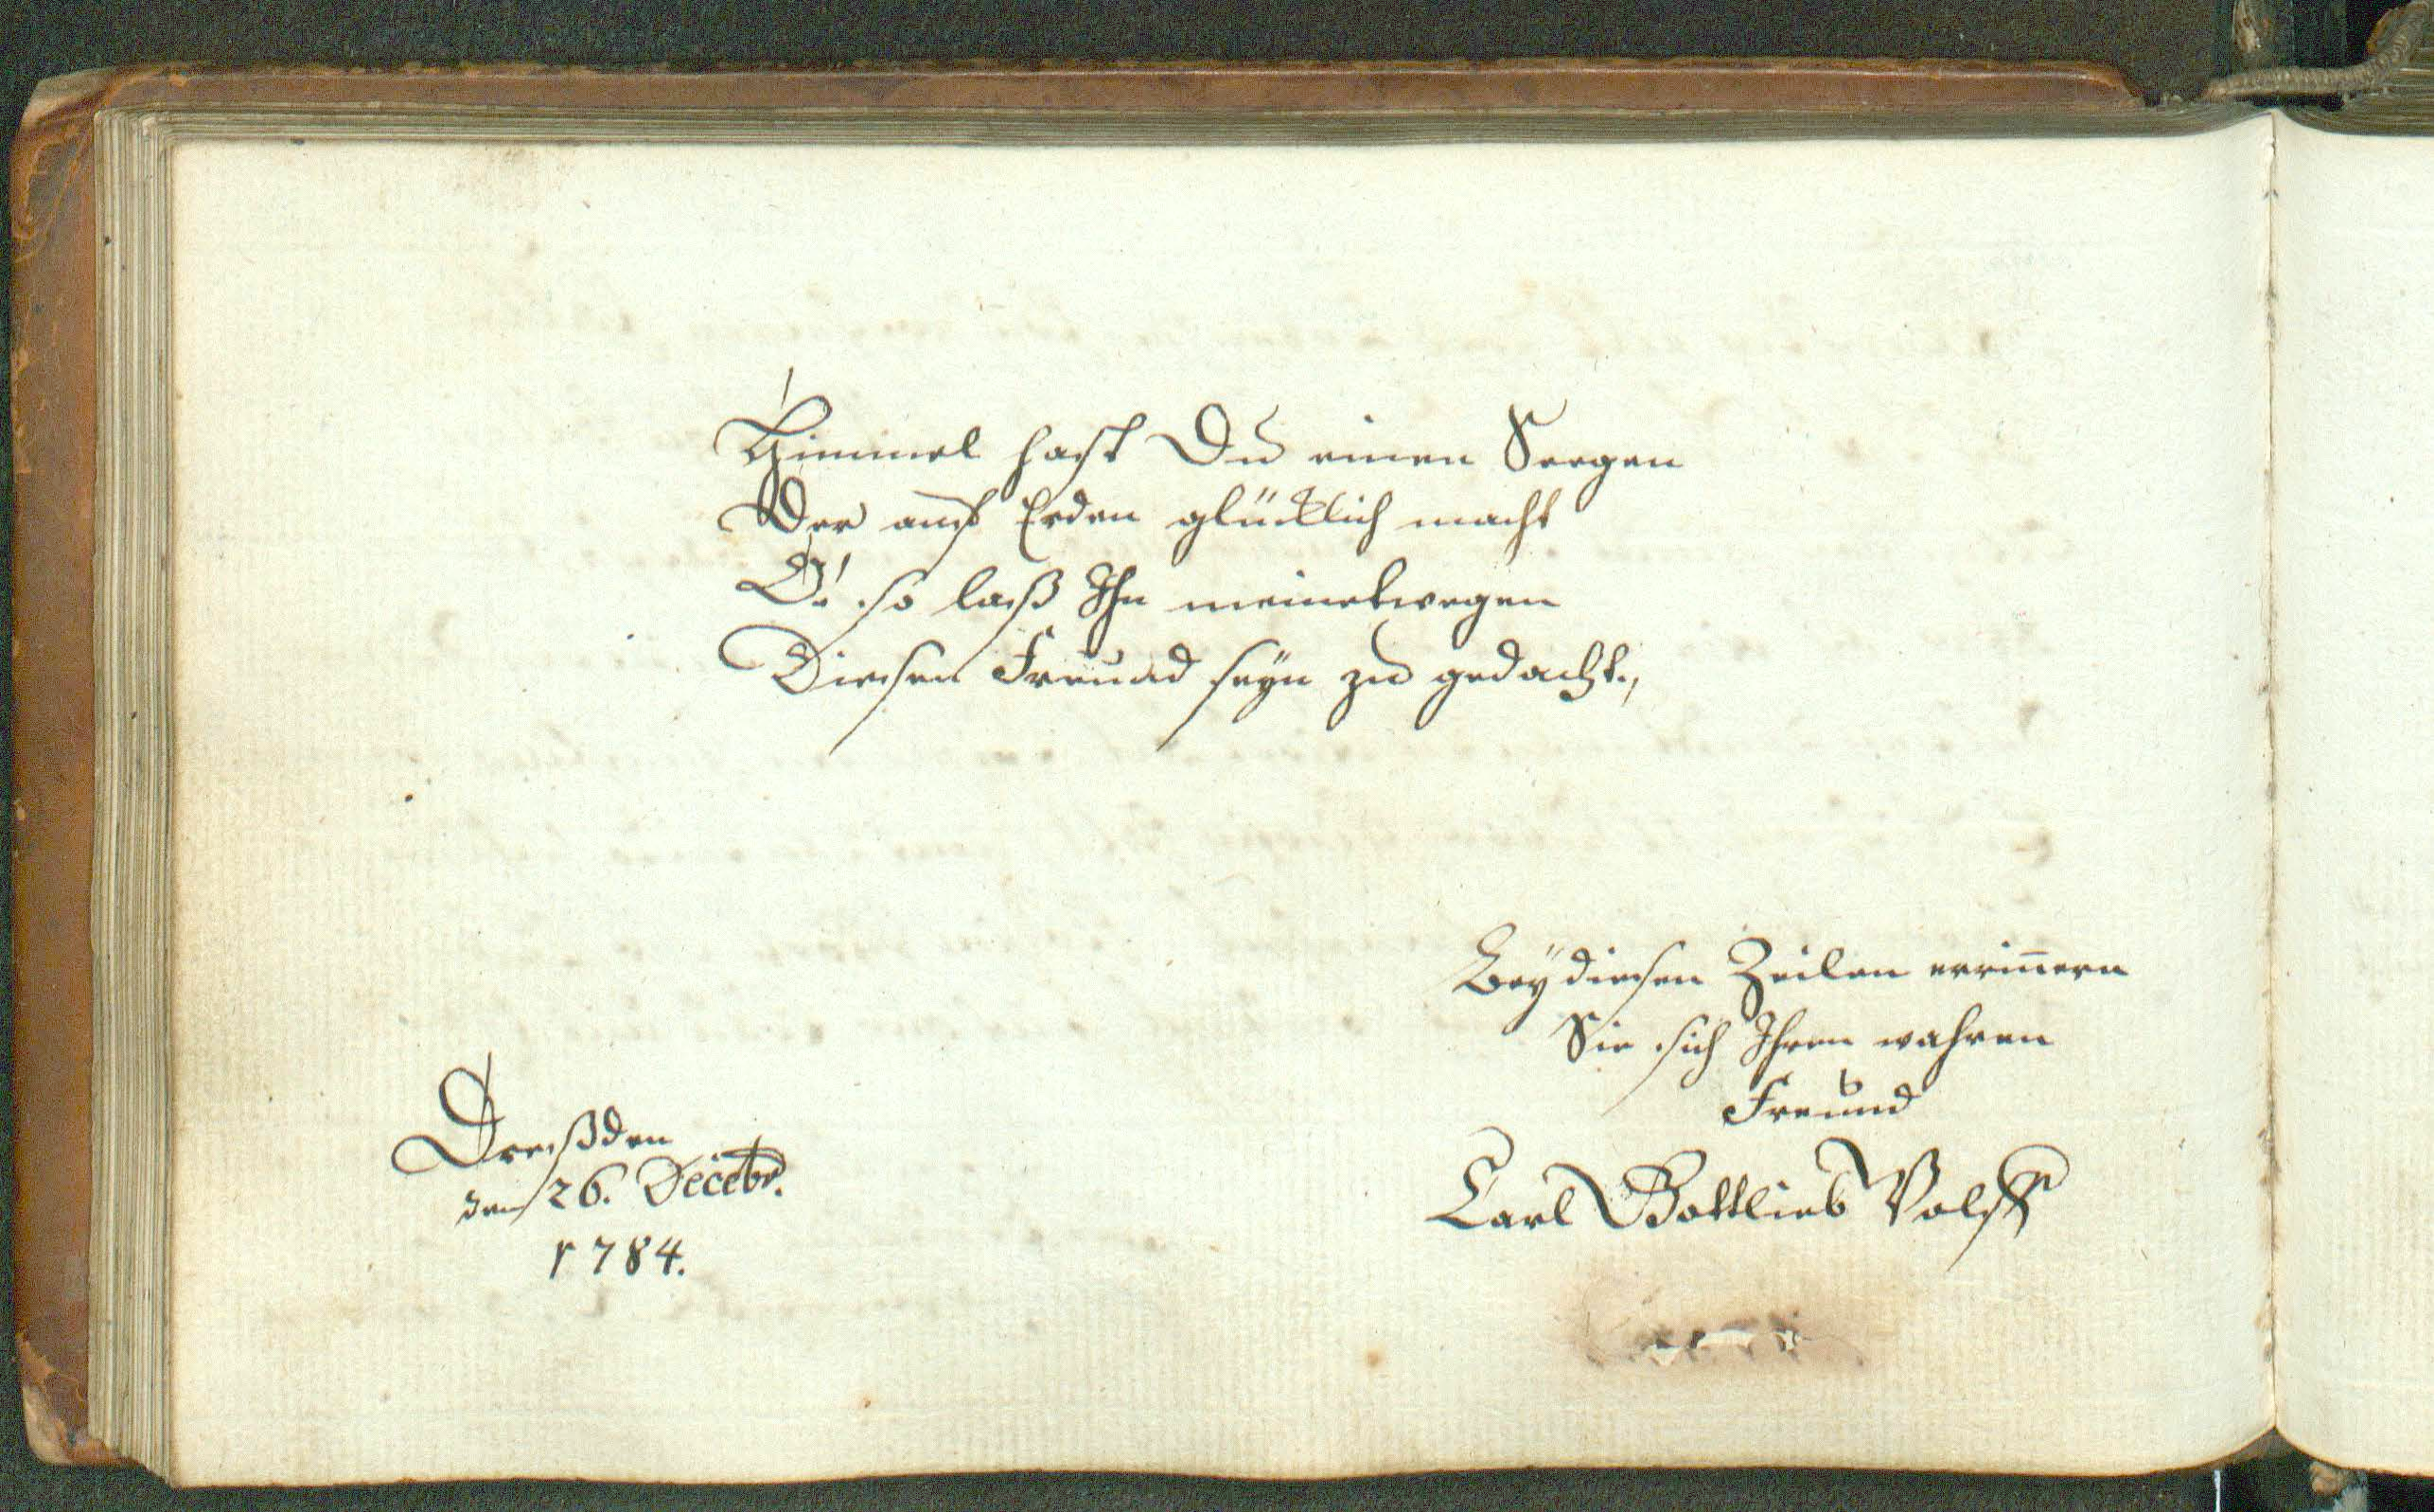 Himmel hast Du einen Seegen
Der auf Erden glücklich macht
O! so laß Ihn meinetwegen
Diesen Freund seyn zu gedacht.,
Bey diesen Zeilen erriñern
Sie sich Ihren wahren
Freund
Carl Gottlieb Volff
Dreßden
den 26. Decebr.
1784.